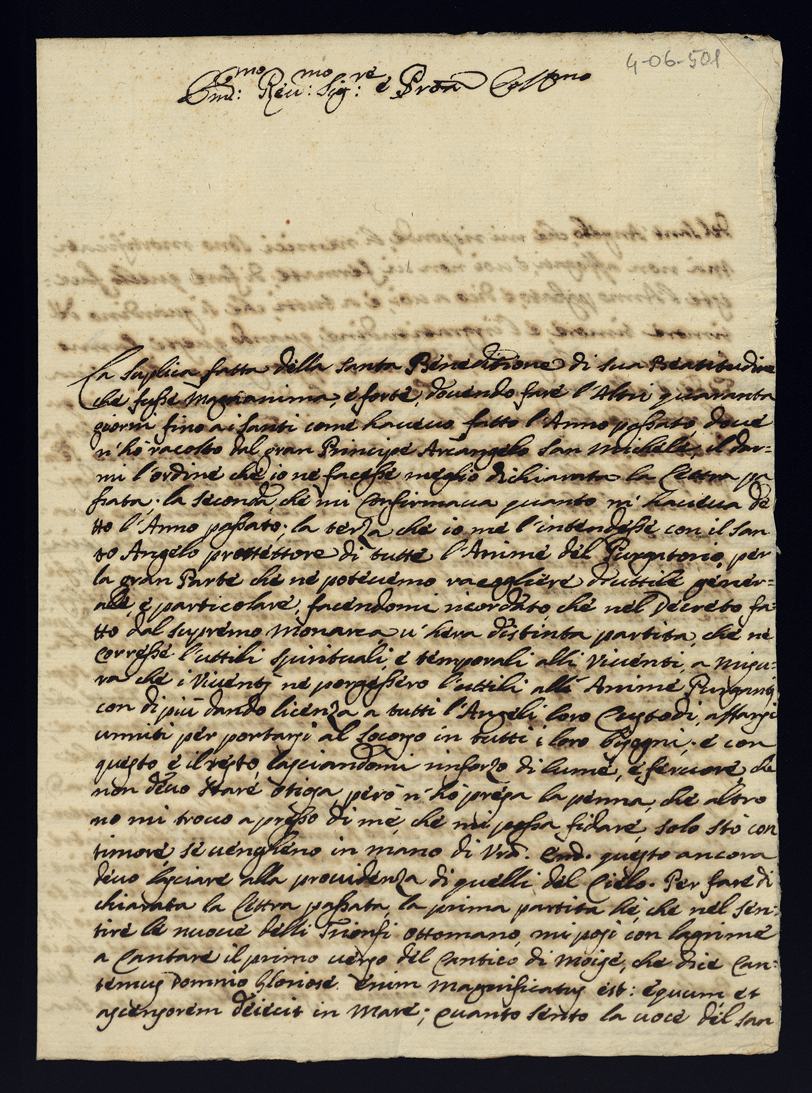 4-06-501
Em:mo Reu:mo Sig:re é Pron Coll:mo
La suplica fatta della santa Beneditione di sua Beatitudine
che fusse Magnanima, é forte, dovendo fare l'Altri quaranta
giorni fino a i santi come havevo fatto l'Anno passato, dové
n'hò racolto dal gran Principe Arcangelo san Michele, il dar=
mi l'ordine che io ne facesse meglio dichiarata la Lettra pa
ssata; la seconda, che mi confirmava quanto m'haveva dé
tto l'Anno passato; la terza che io me l'intendesse con il san
to Angelo prottettore di tutte l'Anime del Purgatorio, per
la gran Parte che ne potevemo racogliere d'uttile géner=
ale é particolare, facendomi ricordato, che nel Decreto fa=
tto dal supremo Monarca v'hera distinta partita, che ne
corresse l'uttili spirituali, é temporali alli Viventi, a misu=
ra che i Viventi ne porgessero l'uttili allé Anime Purganti
con di più dando licenza a tutti l'Angeli loro Custodi, a starsi
unniti per portarsi al socorso in tutti i loro bisogni; é con
questo é il resto, lasciandomi unsforzo di lume, é fervore, che
non dévo staré otiosa peró n'hó presa la penna, che altro
no mi trovo a presso di mé, ché mi possa fidaré, solo stó con
timoré, sé venghino in mano di Vrã. Emã. questo ancora
dévo lasciare alla providenza di quelli del Cielo. Per fare di
chiarata la Lettra passata, la prima partita hé, che nel sen=
tire le nuove delli Trionfi ottomano, mi posi con lagrimé
a Cantare il primo verso del Cantico di Moisé, che dice Can=
temus Domino Gloriosé enim Magnificatus est: équum et
ascensorem deiecit in Mare; Quanto sento la voce del san